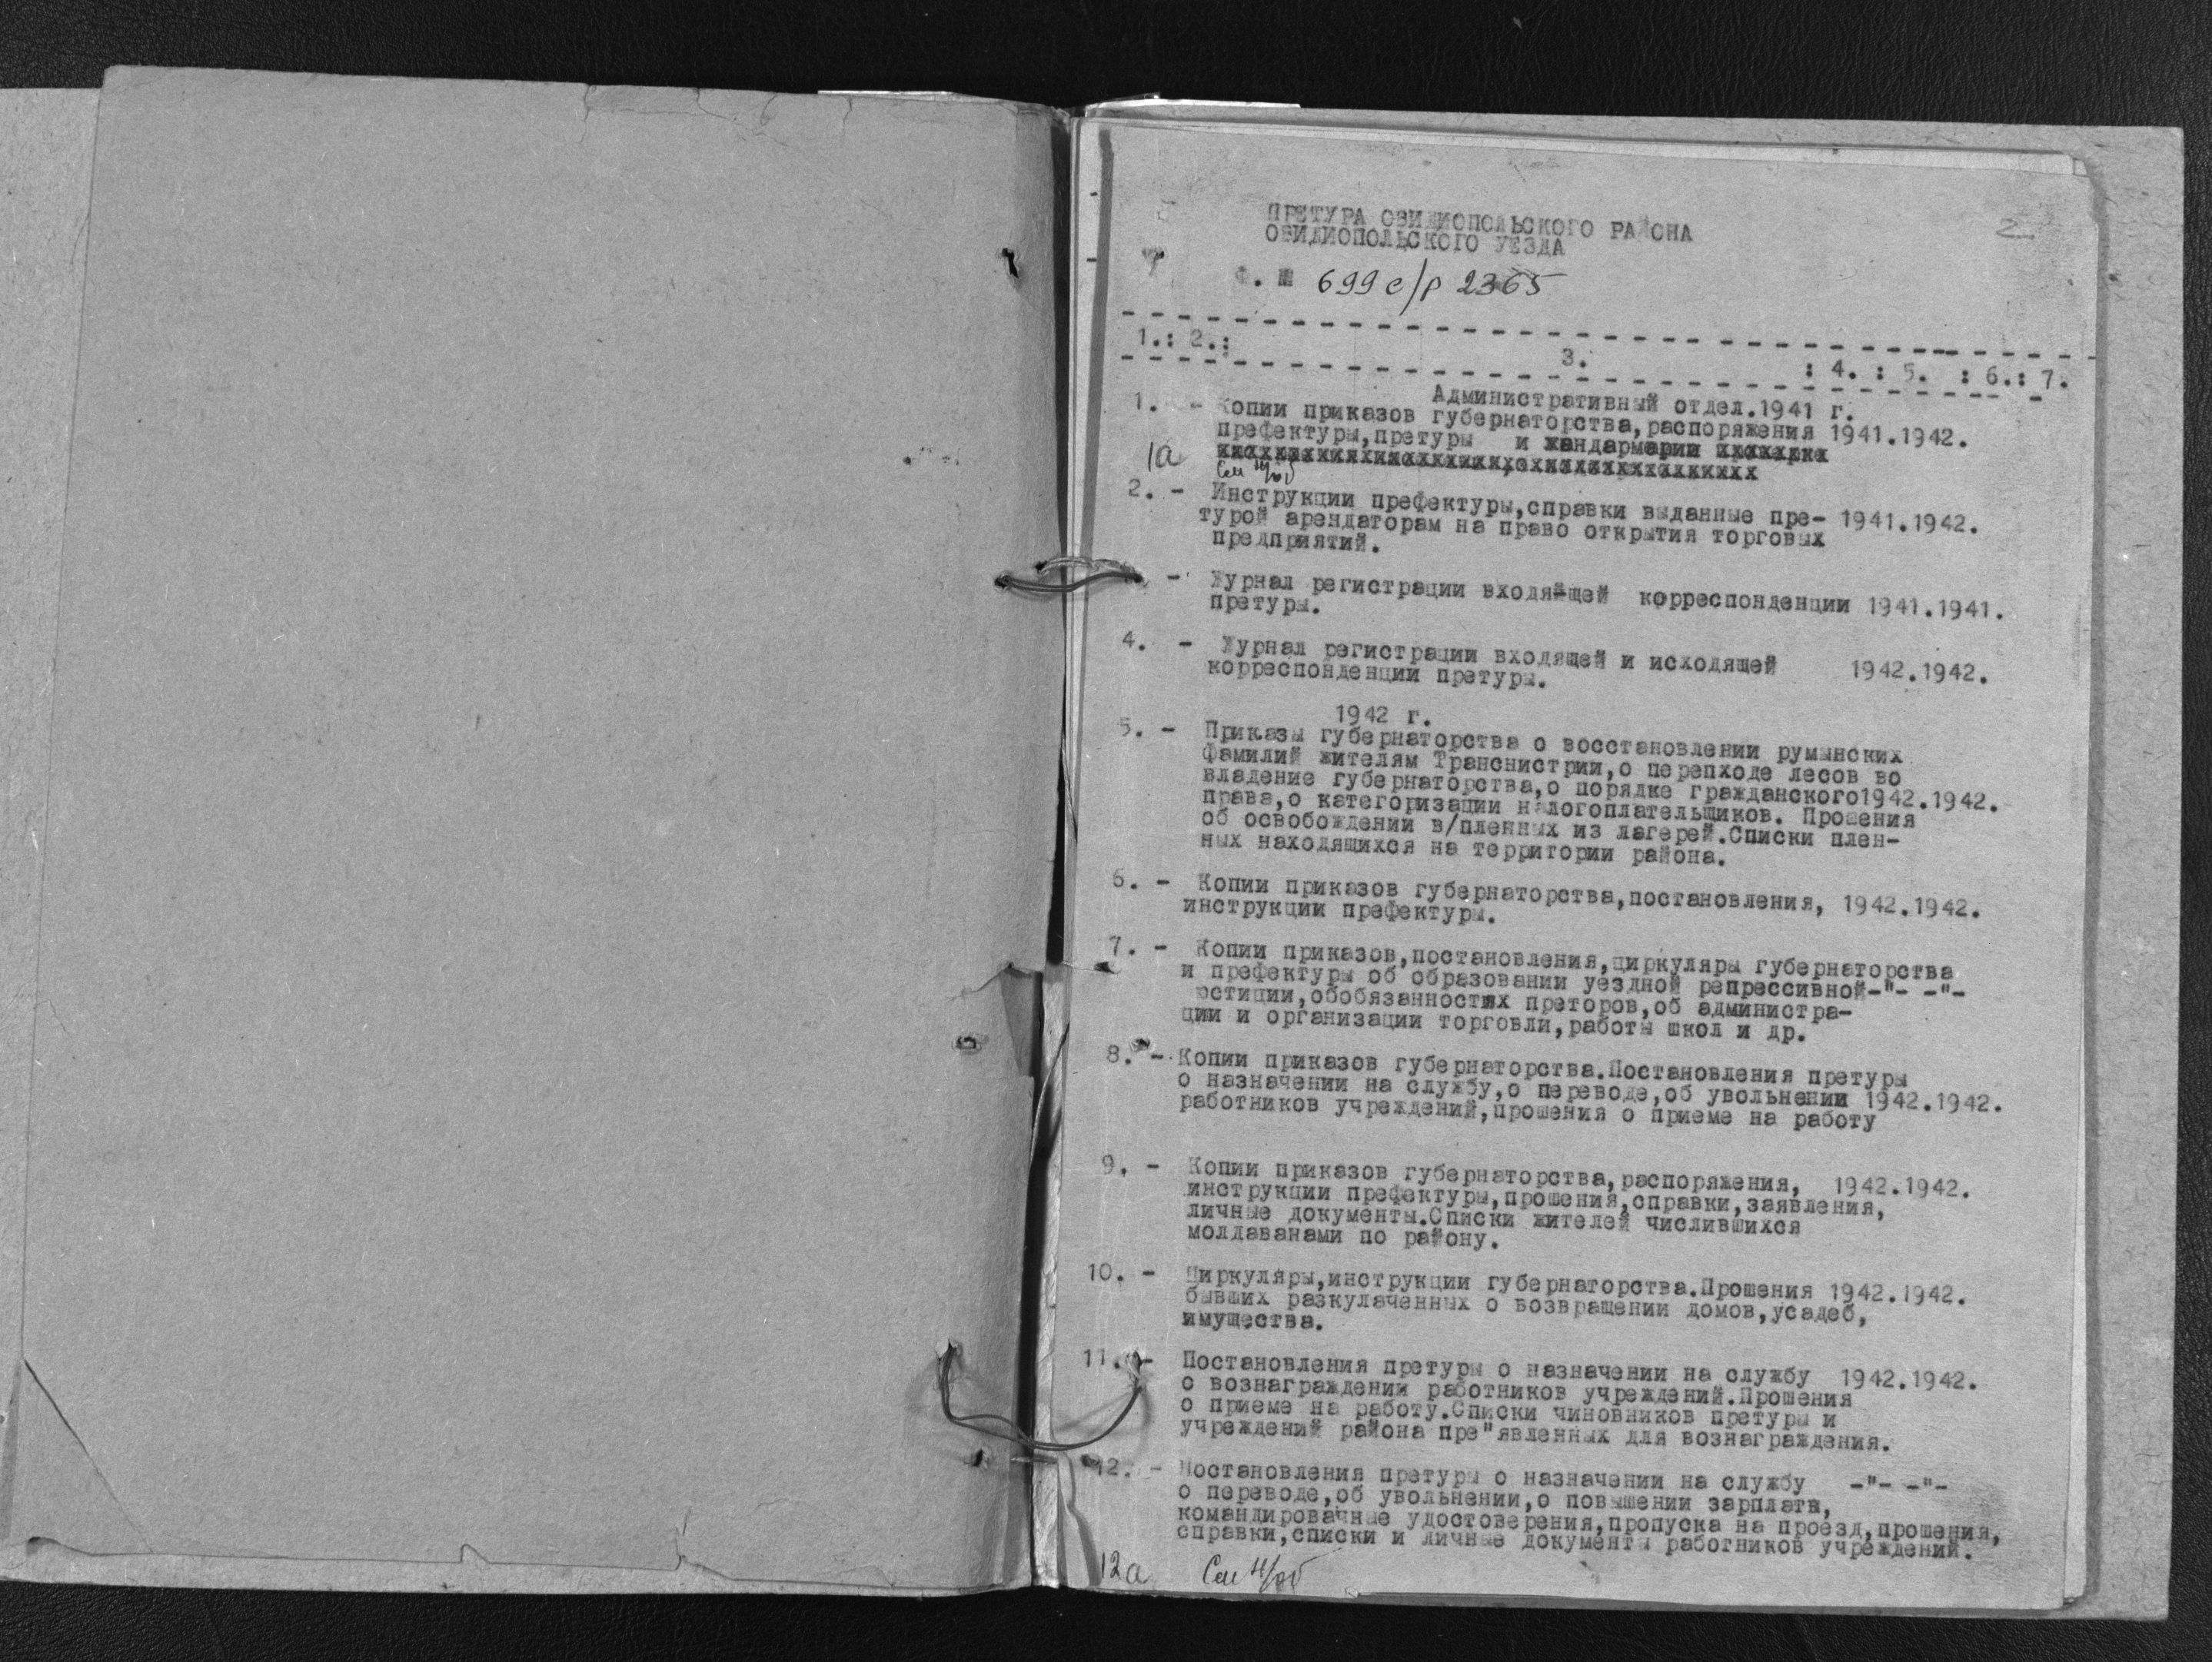 2
ПРЕТУРА ОВИДИОПОЛЬСКОГО РАЙОНА
ОВИДИОПОЛЬСКОГО УЕЗДА
Ф. № 699 с/р 2365
1.: 2.: 3. : 4. : 5. : 6.: 7.
Административный отдел.1941 г.
1. - Копии приказов губернаторства,распоряжения 1941.1942.
префектуры,претуры и жандармерии
1а
2. - Инструкции префектуры,справки выданные пре- 1941.1942.
турой арендаторам на право открытия торговых
предприятий.
- Журнал регистрации входяйщей корреспонденции 1941.1941.
претуры.
4. - Журнал регистрации входящей и исходящей 1942.1942.
корреспонденции претуры.
1942 г.
5. - Приказы губернаторства о восстановлении румынских
фамилий жителям Транснистрии,о перепходе лесов во
владение губернаторства,о порядке гражданского1942.1942.
права,о категоризации налогоплательщиков. Прошения
об освобождении в/пленных из лагерей.Списки плен-
ных находящихся на территории района.
6. - Копии приказов губернаторства,постановления, 1942.1942.
инструкции префектуры.
7. - Копии приказов,постановления,циркуляры губернаторства
и префектуры об образовании уездной репрессивной-"- -"-
юстиции,обобязанностях преторов,об администра-
ции и организации торговли,работы школ и др.
8. - Копии приказов губернаторства.Постановления претуры
о назначении на службу,о переводе,об увольнении 1942.1942.
работников учреждений,прошения о приеме на работу
9. - Копии приказов губернаторства,распоряжения, 1942.1942.
инструкции префектуры,прошения,справки,заявления,
личные документы.Списки жителей числившихся
молдаванами по району.
10. - Циркуляры,инструкции губернаторства.Прошения 1942.1942.
бывших разкулаченных о возвращении домов,усадеб,
имущества.
11. - Постановления претуры о назначении на службу 1942.1942.
о вознаграждении работников учреждений.Прошения
о приеме на работу.Списки чиновников претуры и
учреждений района пре"явленных для вознаграждения.
12. - Постановления претуры о назначении на службу -"- -"-
о переводе,об увольнении,о повышении зарплаты,
командировачные удостоверения,пропуска на проезд,прошения,
справки,списки и личные документы работников учреждений.
12а